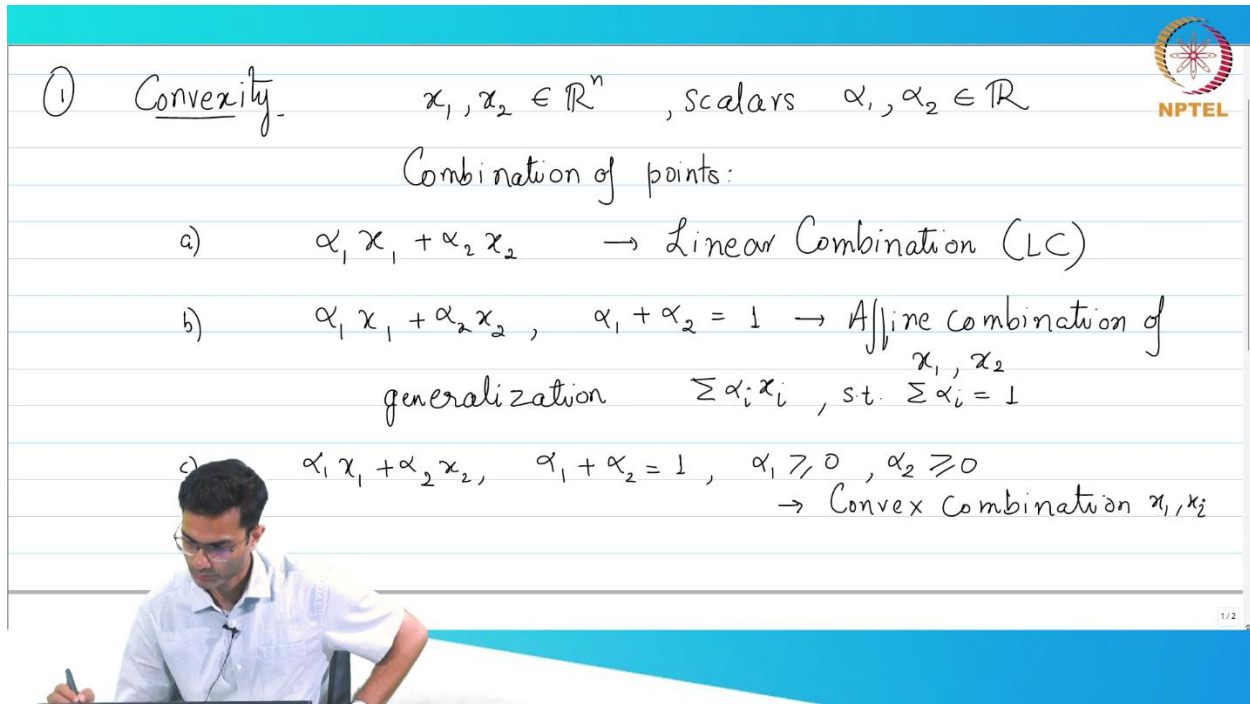 NPTEL
① Convexity. x₁, x₂ ∈ ℝⁿ , scalars α₁, α₂ ∈ ℝ
Combination of points:
a) α₁ x₁ + α₂ x₂ → Linear Combination (LC)
b) α₁ x₁ + α₂ x₂ , α₁ + α₂ = 1 → Affine combination of
x₁, x₂
generalization Σ αᵢ xᵢ , s.t. Σ αᵢ = 1
c) α₁ x₁ + α₂ x₂, α₁ + α₂ = 1 , α₁ ≥ 0 , α₂ ≥ 0
→ Convex combination x₁, x₂
1/2